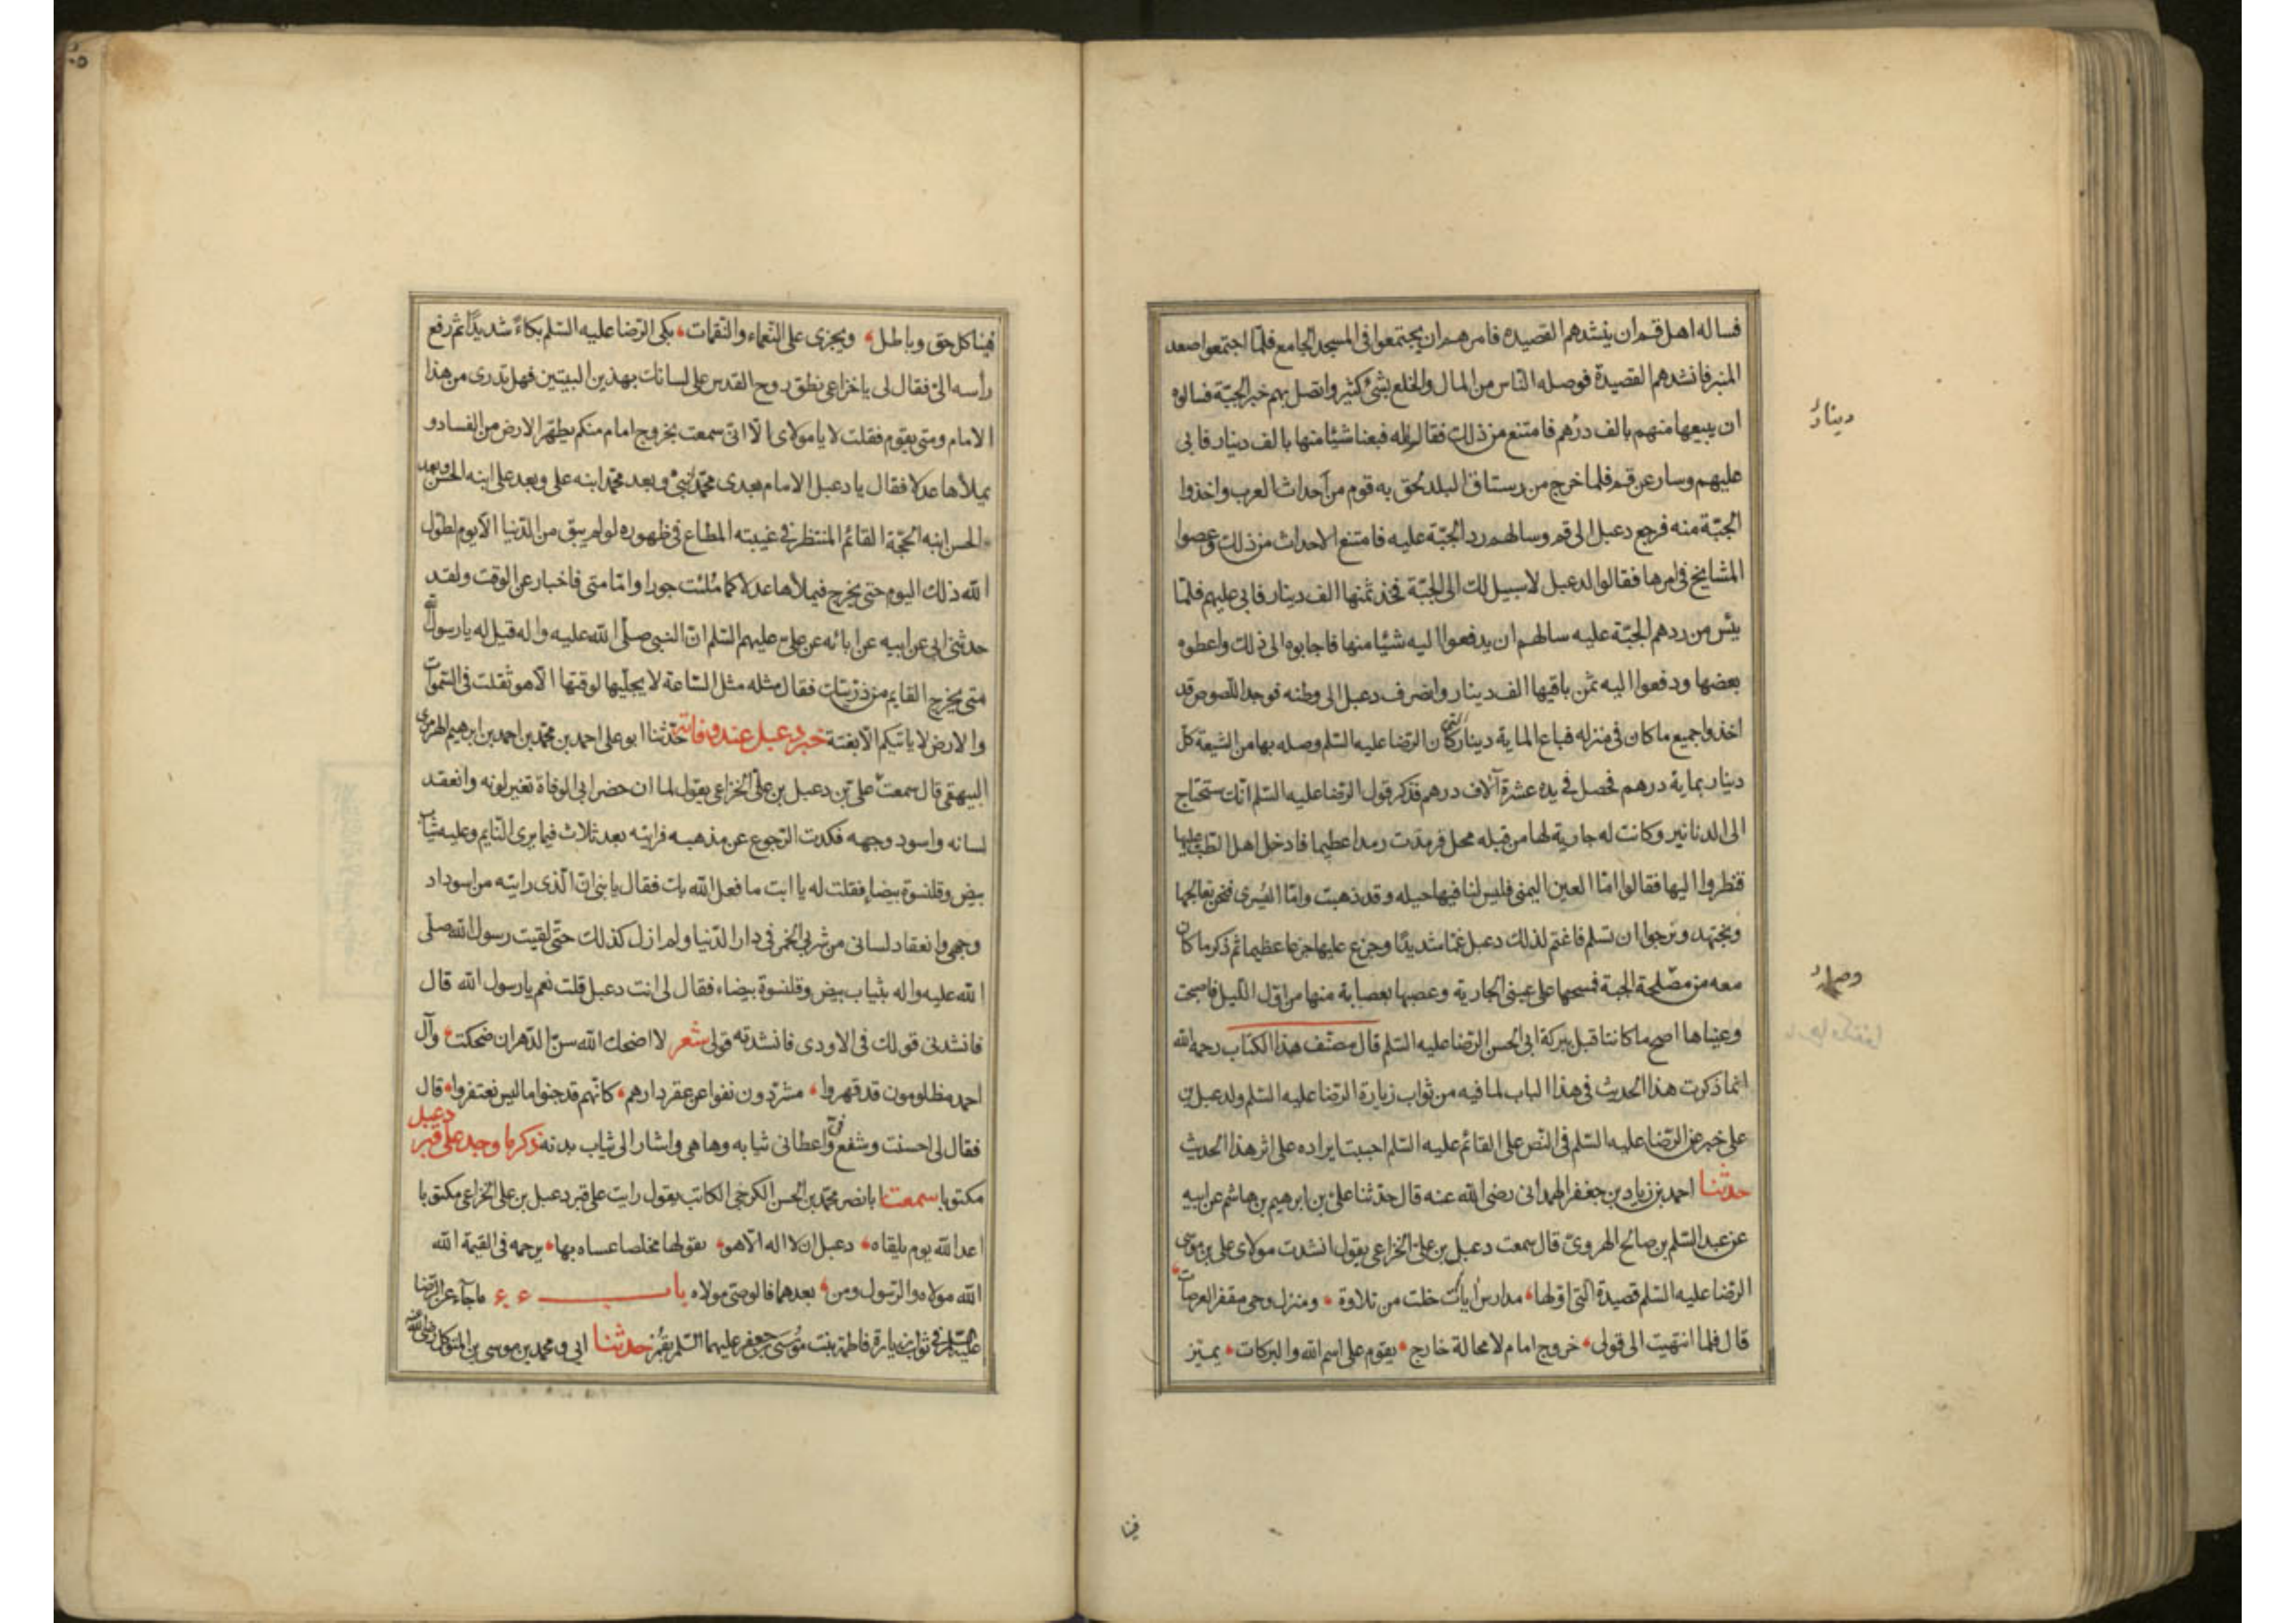 فساله اهل قم ان ينشدهم القصيده فامرهم ان يجتمعوا فى المسجد الجامع فلمّا اجتمعوا صعد
المنبر فانشدهم القصيدة فوصله الناس من المال والخلع بشئ كثير واتصل بهم خبر الجبّة فسالوه
ان يبيعها منهم بالف درهم فامتنع من ذلك فقالوا له فبعنا شيئا منها بالف دينار فابى
دينار
عليهم وسار عن قم فلما خرج من رستاق البلد لحق به قوم من احداث العرب واخذوا
الجبّة منه فرجع دعبل الى قم وسالهم رد الجبّة عليه فامتنع الاحداث من ذلك وعصوا
المشايخ فى امرها فقالوا لدعبل لا سبيل لك الى الجبّة فخذ ثمنها الف دينار فابى عليهم فلمّا
يئس من ردهم الجبّة عليه سالهم ان يدفعوا اليه شيئا منها فاجابوه الى ذلك واعطوه
بعضها ودفعوا اليه ثمن باقيها الف دينار وانصرف دعبل الى وطنه فوجد اللصوص قد
اخذوا جميع ما كان فى منزله فباع الماية دينار التى كان الرضا عليه السّلم وصله بها من الشيعة كلّ
دينار بماية درهم فحصل فى يده عشرة آلاف درهم فذكر قول الرضا عليه السّلم انّك ستحتاج
الى الدنانير وكانت له جارية لها من قبله محل فرمدت رمدا عظيما فادخل اهل الطبّ عليها
فنظروا اليها فقالوا امّا العين اليمنى فليس لنا فيها حيله وقد ذهبت وامّا اليُسرى فنحن نعالجها
ونجتهد ونرجوا ان تسلم فاغتم لذلك دعبل غمّا شديدًا وجزع عليها جزعا عظيما ثم ذكر ما كان
وصلة
معه من فضلة الجبة فمسحها على عينى الجارية وعصبها بعصابة منها من اوّل الليل فاصبحت
وعيناها اصح ما كانتا قبل ببركة ابى الحسن الرضا عليه السّلم قال مصنّف هذا الكتاب رحمه الله
انما ذكرت هذا الحديث فى هذا الباب لما فيه من ثواب زيارة الرضا عليه السّلم ولدعبل بن
على خبر عن الرّضا عليه السّلم فى النّص على القائم عليه السّلم احببت ايراده على اثر هذا الحديث
حدثنا احمد بن زياد بن جعفر الهمدانى رضى الله عنه قال حدّثنا علىّ بن ابرهيم بن هاشم عن ابيه
عن عبد السّلم بن صالح الهروىّ قال سمعت دعبل بن علىّ الخزاعى يقول انشدت مولاى على بن موسى
الرّضا عليه السّلم قصيدة التى اوّلها مدارس ايات خلت من تلاوة ومنزل وحى مقفر العرصات
قال فلما انتهيت الى قولى خروج امام لا محالة خارج يقوم على اسم الله والبركات يميّز
فينا
فينا كل حق وباطل ويجزى على النّعماء والنّقمات بكى الرّضا عليه السّلم بكاءً شديدًا ثم رفع
رأسه الىّ فقال لى يا خزاعى نطق روح القدس على لسانك بهذين البيتين فهل تدرى من هذا
الامام ومتى يقوم فقلت لا يا مولاى الّا انّى سمعت بخروج امام منكم يطهّر الارض من الفساد و
يملأها عدلا فقال يا دعبل الامام بعدى محمّد ابنى وبعد محمّد ابنه على وبعد على ابنه الحسن وبعد
الحسن ابنه الحجّة القائم المنتظر فى غيبته المطاع فى ظهوره لو لم يبق من الدّنيا الّا يوم لطوّل
الله ذلك اليوم حتى يخرج فيملأها عدلا كما مُلئت جورا وامّا متى فاخبار عن الوقت ولقد
حدثنى ابى عن ابيه عن ابائه عن علىّ عليهم السّلم انّ النبى صلّى الله عليه واله قيل له يا رسول الله
متى يخرج القايم من ذرّيتك فقال مثله مثل السّاعة لا يجلّيها لوقتها الّا هو ثقلت فى السّموات
والارض لا ياتيكم الّا بغتة خبر دعبل عند وفاته حدّثنا ابو على احمد بن محمّد بن احمد بن ابرهيم الهرمزى
البيهقى قال سمعت علىّ بن دعبل بن علىّ الخزاعى يقول لما ان حضر ابى الوفاة تغير لونه وانعقد
لسانه واسود وجهه فكدت الرّجوع عن مذهبه فرايته بعد ثلاث فيما يرى النّايم وعليه ثياب
بيض وقلنسوة بيضاء فقلت له يا ابت ما فعل الله بك فقال يا بنى انّ الّذى رايته من اسوداد
وجهى وانعقاد لسانى من شربى الخمر فى دار الدّنيا ولم ازل كذلك حتّى لقيت رسول الله صلّى
الله عليه واله بثياب بيض وقلنسوة بيضاء فقال لى انت دعبل قلت نعم يا رسول الله قال
فانشدنى قولك فى الاودى فانشدته قولى شعر لا اضحك الله سنّ الدّهر ان ضحكت وآل
احمد مظلومون قد قهروا مشرّدون نفوا عن عقر دارهم كانّهم قد جنوا ما ليس تغتفروا قال
فقال لى احسنت وشفع فىّ واعطانى ثيابه وها هى واشار الى ثياب بدنه ذكر ما وجد على قبر دعبل
مكتوبا سمعت ابا نصر محمّد بن الحسن الكرخى الكاتب يقول رايت على قبر دعبل بن على الخزاعى مكتوبا
اعد الله يوم يلقاه دعبل ان لا اله الّا هو يقولها مخلصا عساه بها يرحمه فى القيمة الله
الله مولاه والرّسول ومن بعدهما فالوصّى مولاه باب ما جآء عن الرّضا
عليه السّلم فى ثواب زيارة فاطمة بنت مُوسَى بن جعفر عليهما السّلم بقُم حدثنا ابى ومحمد بن موسى بن المتوكل رضى الله عنه